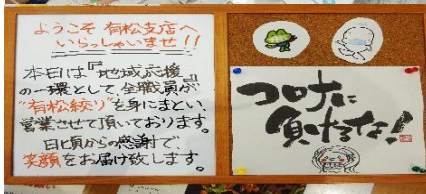 ようこそ 有松支店へ
いらっしゃいませ!!
本日は『地域応援』
の一環として、全職員が
"有松絞り"を身にまとい、
営業させて頂いております。
日頃からの感謝で、
笑顔をお届け致します。
コロナに
負けるな!